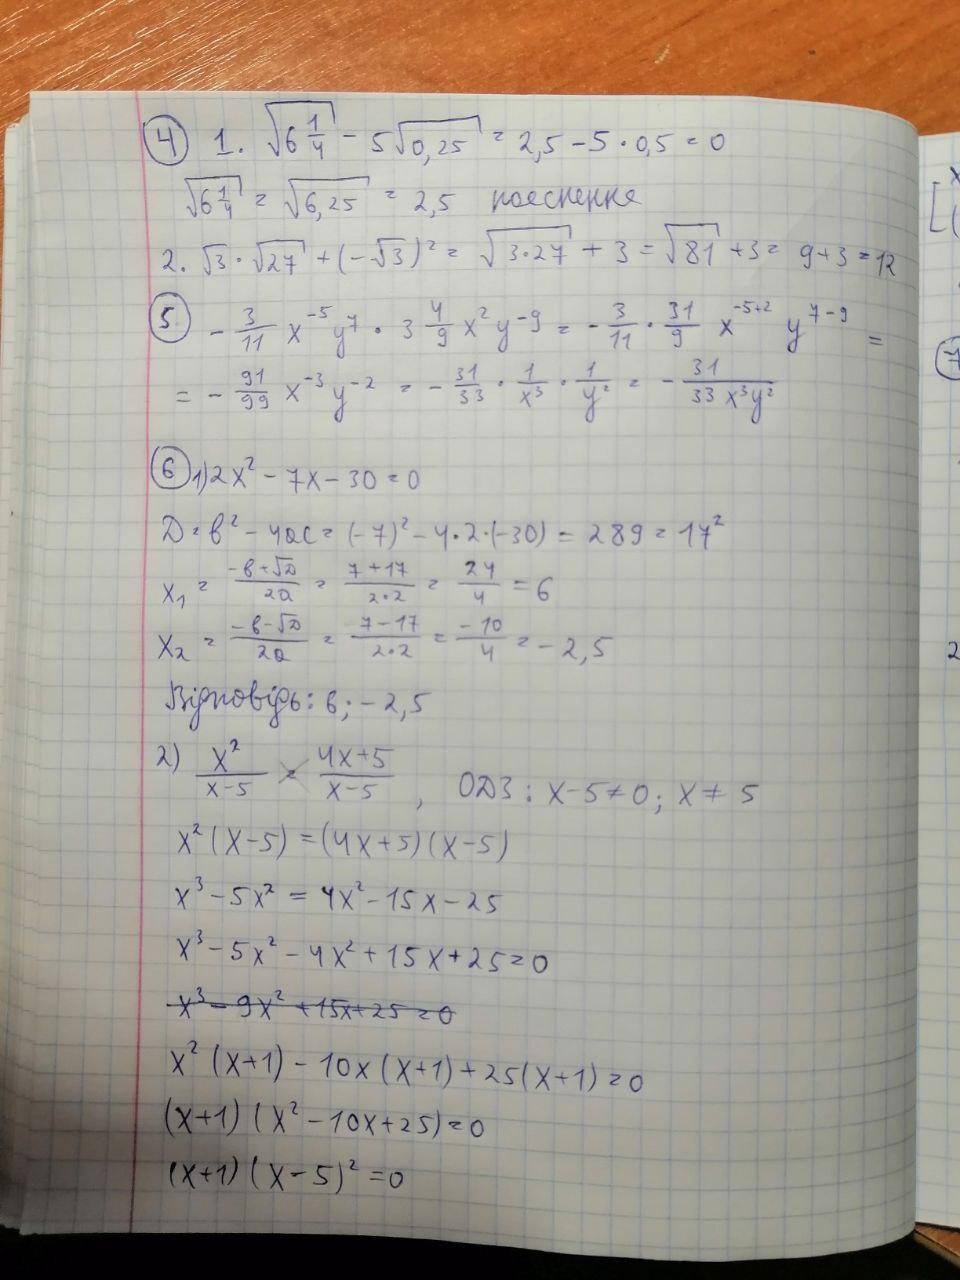 ④ 1. √6 1/4 - 5√0,25 = 2,5 - 5 · 0,5 = 0
√6 1/4 = √6,25 = 2,5 пояснення
2. √3 · √27 + (-√3)² = √3·27 + 3 = √81 + 3 = 9 + 3 = 12
⑤ - 3/11 x⁻⁵ y⁷ · 3 4/9 x² y⁻⁹ = - 3/11 · 31/9 x⁻⁵⁺² y⁷⁻⁹ =
= - 91/99 x⁻³ y⁻² = - 31/33 · 1/x³ · 1/y² = - 31/33 x³y²
⑥ 1) 2x² - 7x - 30 = 0
D = b² - 4ac = (-7)² - 4·2·(-30) = 289 = 17²
x₁ = -b+√D/2a = 7+17/2·2 = 24/4 = 6
x₂ = -b-√D/2a = 7-17/2·2 = -10/4 = -2,5
Відповідь: 6; -2,5
2) x²/x-5 = 4x+5/x-5 , ОДЗ: x-5≠0; x ≠ 5
x² (x-5) = (4x+5)(x-5)
x³ - 5x² = 4x² - 15x - 25
x³ - 5x² - 4x² + 15x + 25 = 0
x³ - 9x² + 15x + 25 = 0
x² (x+1) - 10x (x+1) + 25(x+1) = 0
(x+1) (x² - 10x + 25) = 0
(x+1) (x - 5)² = 0
x
[
(
7
2